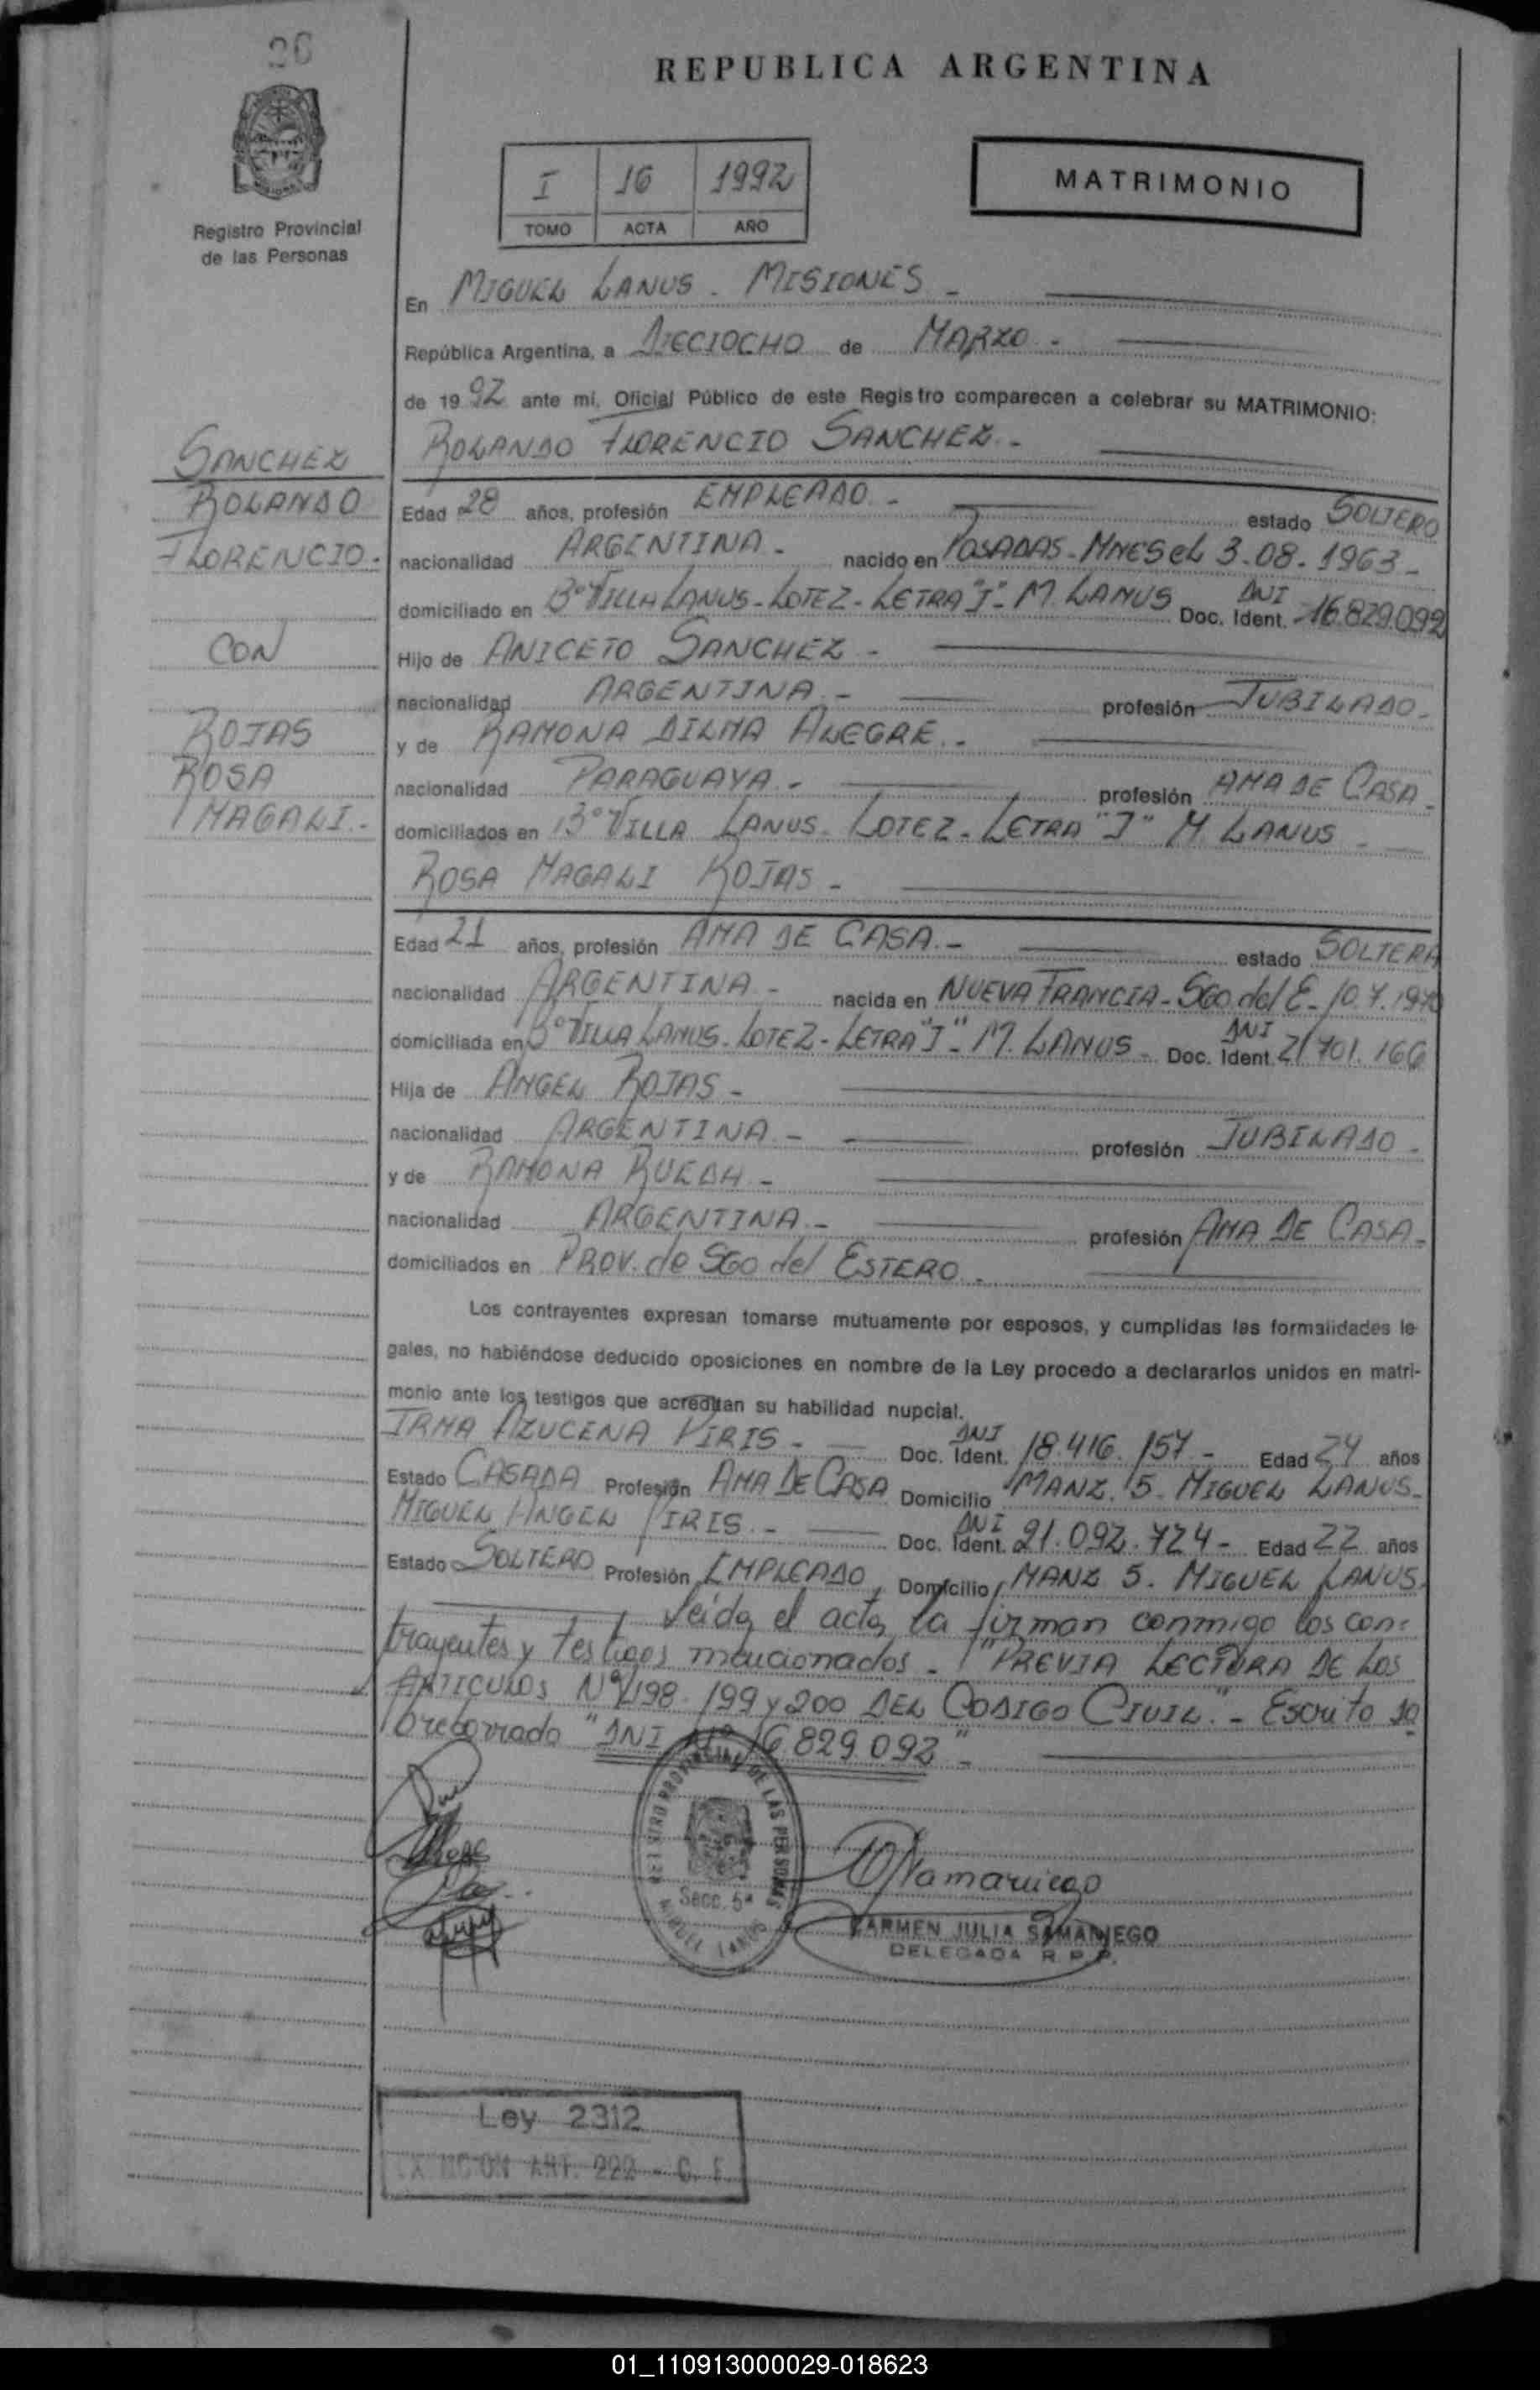 26
REPUBLICA ARGENTINA
I 16 1992
TOMO ACTA AÑO
MATRIMONIO
Registro Provincial
de las Personas
En MIGUEL LANUS - MISIONES -
República Argentina, a DIECIOCHO de MARZO -
de 1992 ante mí, Oficial Público de este Registro comparecen a celebrar su MATRIMONIO:
ROLANDO FLORENCIO SANCHEZ -
SANCHEZ
ROLANDO
FLORENCIO -
CON
ROJAS
ROSA
MAGALI.-
Edad 28 años, profesión EMPLEADO - estado SOLTERO
nacionalidad ARGENTINA - nacido en POSADAS - MNES el 3-08-1963 -
domiciliado en Bº VILLA LANUS - LOTE 2 - LETRA "J" - M. LANUS Doc. Ident. DNI 16.829.092
Hijo de ANICETO SANCHEZ -
nacionalidad ARGENTINA - profesión JUBILADO -
y de RAMONA DILMA ALEGRE -
nacionalidad PARAGUAYA - profesión AMA DE CASA -
domiciliados en Bº VILLA LANUS - LOTE 2 - LETRA "J" M. LANUS -
ROSA MAGALI ROJAS -
Edad 21 años, profesión AMA DE CASA.- estado SOLTERA
nacionalidad ARGENTINA - nacida en NUEVA FRANCIA - SGO. del E - 10.7.1970
domiciliada en Bº VILLA LANUS - LOTE 2 - LETRA "J" - M. LANUS - Doc. Ident. DNI 21 701. 166
Hija de ANGEL ROJAS -
nacionalidad ARGENTINA - profesión JUBILADO -
y de RAMONA RUEDA -
nacionalidad ARGENTINA - profesión AMA DE CASA -
domiciliados en PROV. de SGO del ESTERO -
Los contrayentes expresan tomarse mutuamente por esposos, y cumplidas las formalidades le-
gales, no habiéndose deducido oposiciones en nombre de la Ley procedo a declararlos unidos en matri-
monio ante los testigos que acreditan su habilidad nupcial.
IRMA AZUCENA PIRIS - Doc. Ident. DNI 18.416.157 - Edad 24 años
Estado CASADA Profesión AMA DE CASA Domicilio MANZ. 5 - MIGUEL LANUS -
MIGUEL ANGEL PIRIS - Doc. Ident. DNI 21.092.724 - Edad 22 años
Estado SOLTERO Profesión EMPLEADO, Domicilio MANZ 5. MIGUEL LANUS.
Leida el acta, la firman conmigo los con-
trayentes y testigos mencionados - "PREVIA LECTURA DE LOS
ARTICULOS Nº 198-199 y 200 DEL CODIGO CIVIL." - Escrito so
brecorrado "DNI Nº 16.829.092" -
REGISTRO PROVINCIAL DE LAS PERSONAS
Secc. 5ª
MIGUEL LANUS
CARMEN JULIA SAMANIEGO
DELEGADA R. P. P.
Ley 2312
ART. 222 - C. F.
01_110913000029-018623